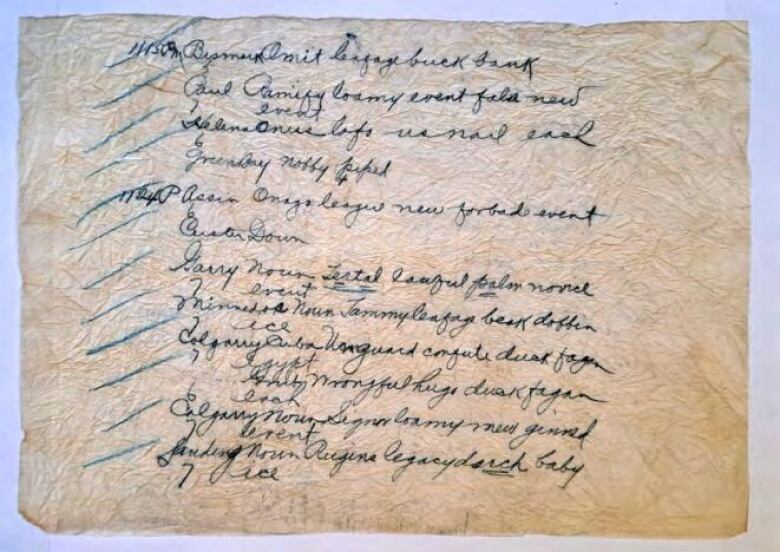 Bismark Omit leafage buck bank
Paul Ramify loamy event false new
event
Helena Onus lofo us nail each
Greenbay nobby piped
Assin Onago league new forbade event
Custer Down
Garry Noun Tertal lawful palm novice
event
Minnedos Noun Jammy leafage beak dobbin
ice
Calgarry Cuba Unguard confute duck fagan
Egypt
Wrongful hugo duck fagan
each
Calgarry Noun Signor loamy new ginned
event
Landing Noun Rugins legacy duch baby
ice